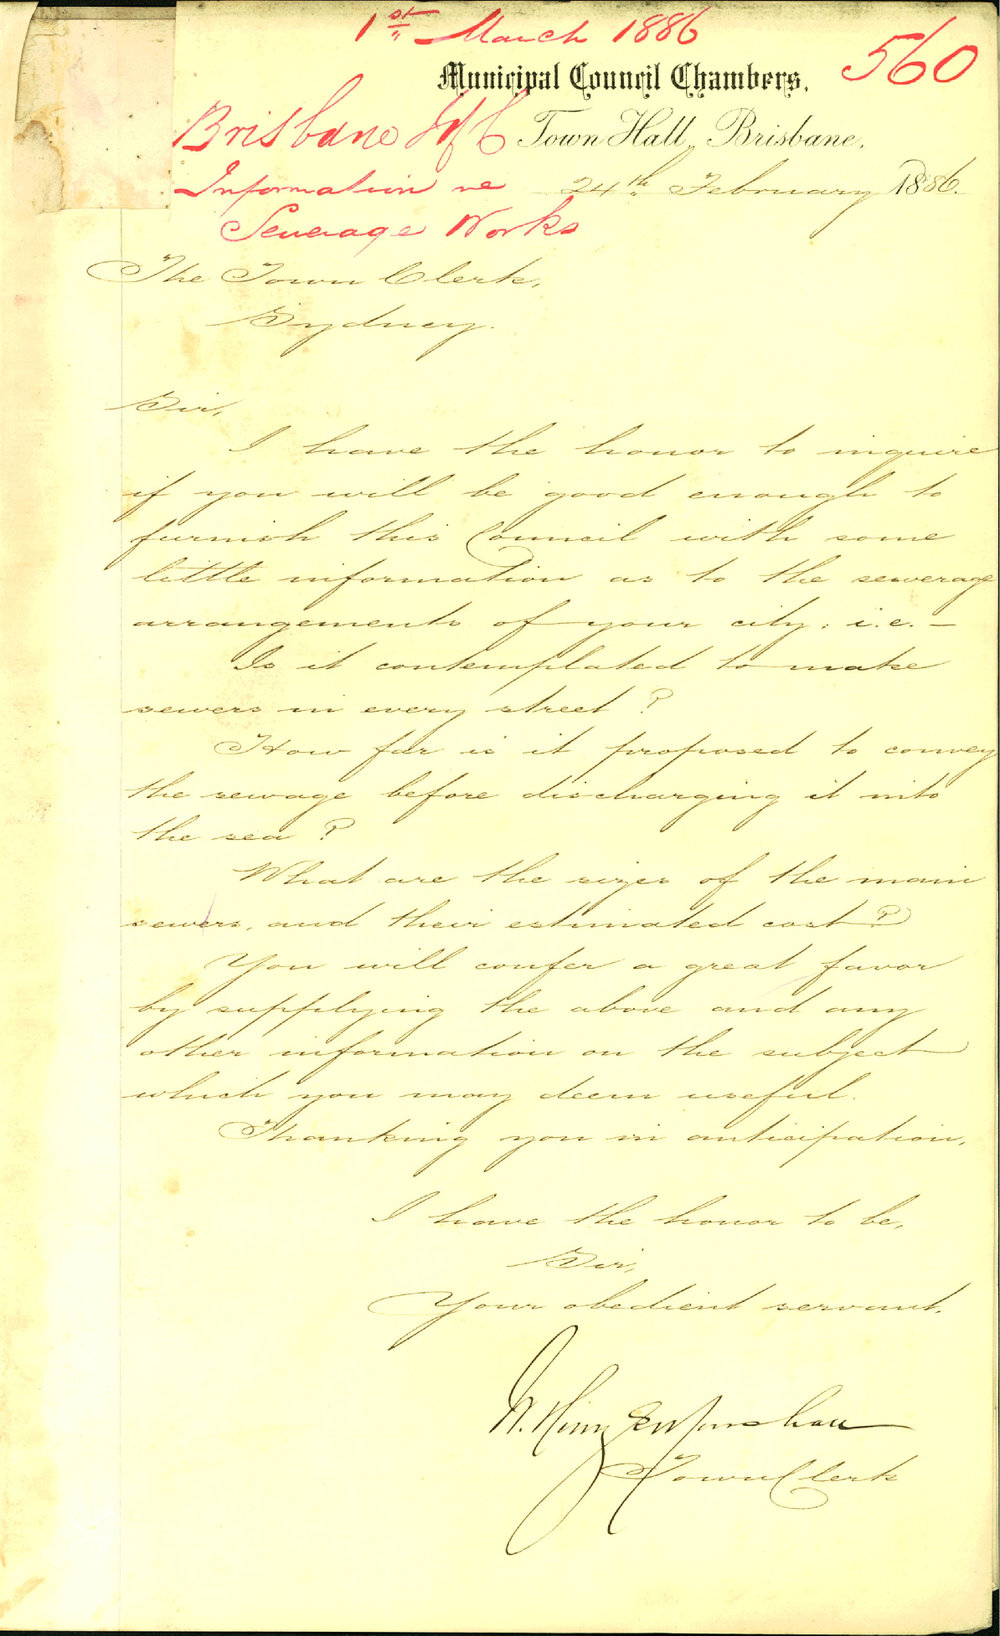 1st March 1886
560
Municipal Council Chambers,
Brisbane
Town Hall, Brisbane,
Information re
24th February 1886.
Sewerage Works
The Town Clerk,
Sydney.
Sir,
I have the honor to inquire
if you will be good enough to
furnish this Council with some
little information as to the sewerage
arrangements of your city: i.e. –
Is it contemplated to make
sewers in every street?
How far is it proposed to convey
the sewage before discharging it into
the sea?
What are the sizes of the main
sewers, and their estimated cost?
You will confer a great favor
by supplying the above and any
other information on the subject
which you may deem useful.
Thanking you in anticipation,
I have the honor to be,
Sir,
Your obedient servant,
Town Clerk